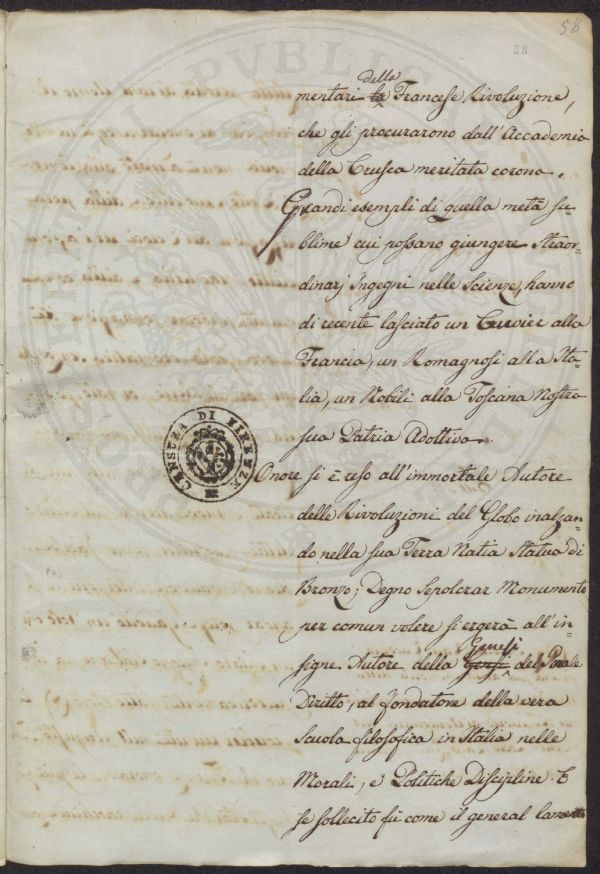 58
58
della
mentari la Francese Rivoluzione,
che gli procurarono dall'Accademia
della Crusca meritata corona.
Grandi esempli di quella metà su-
blime cui possano giungere straor-
dinarj Ingegni nelle Scienze, hanno
di recente lasciato un Cuvier alla
Francia, un Romagnosi alla Ita-
lia, un Nobili alla Toscana Nostra
sua Patria Adottiva.
Onore si è reso all'immortale Autore
delle Rivoluzioni del Globo inalzan-
do nella sua Terra Natia Statua di
Bronzo; Degno Sepolcrar Monumento
per comun volere si ergerà all'in-
signe Autore della Genesi del Penale
Genesi
Diritto, al fondatore della vera
scuola filosofica in Italia nelle
Morali, e Politiche Discipline. E
se sollecito fù come il general lamento
CENSURA DI FIRENZE